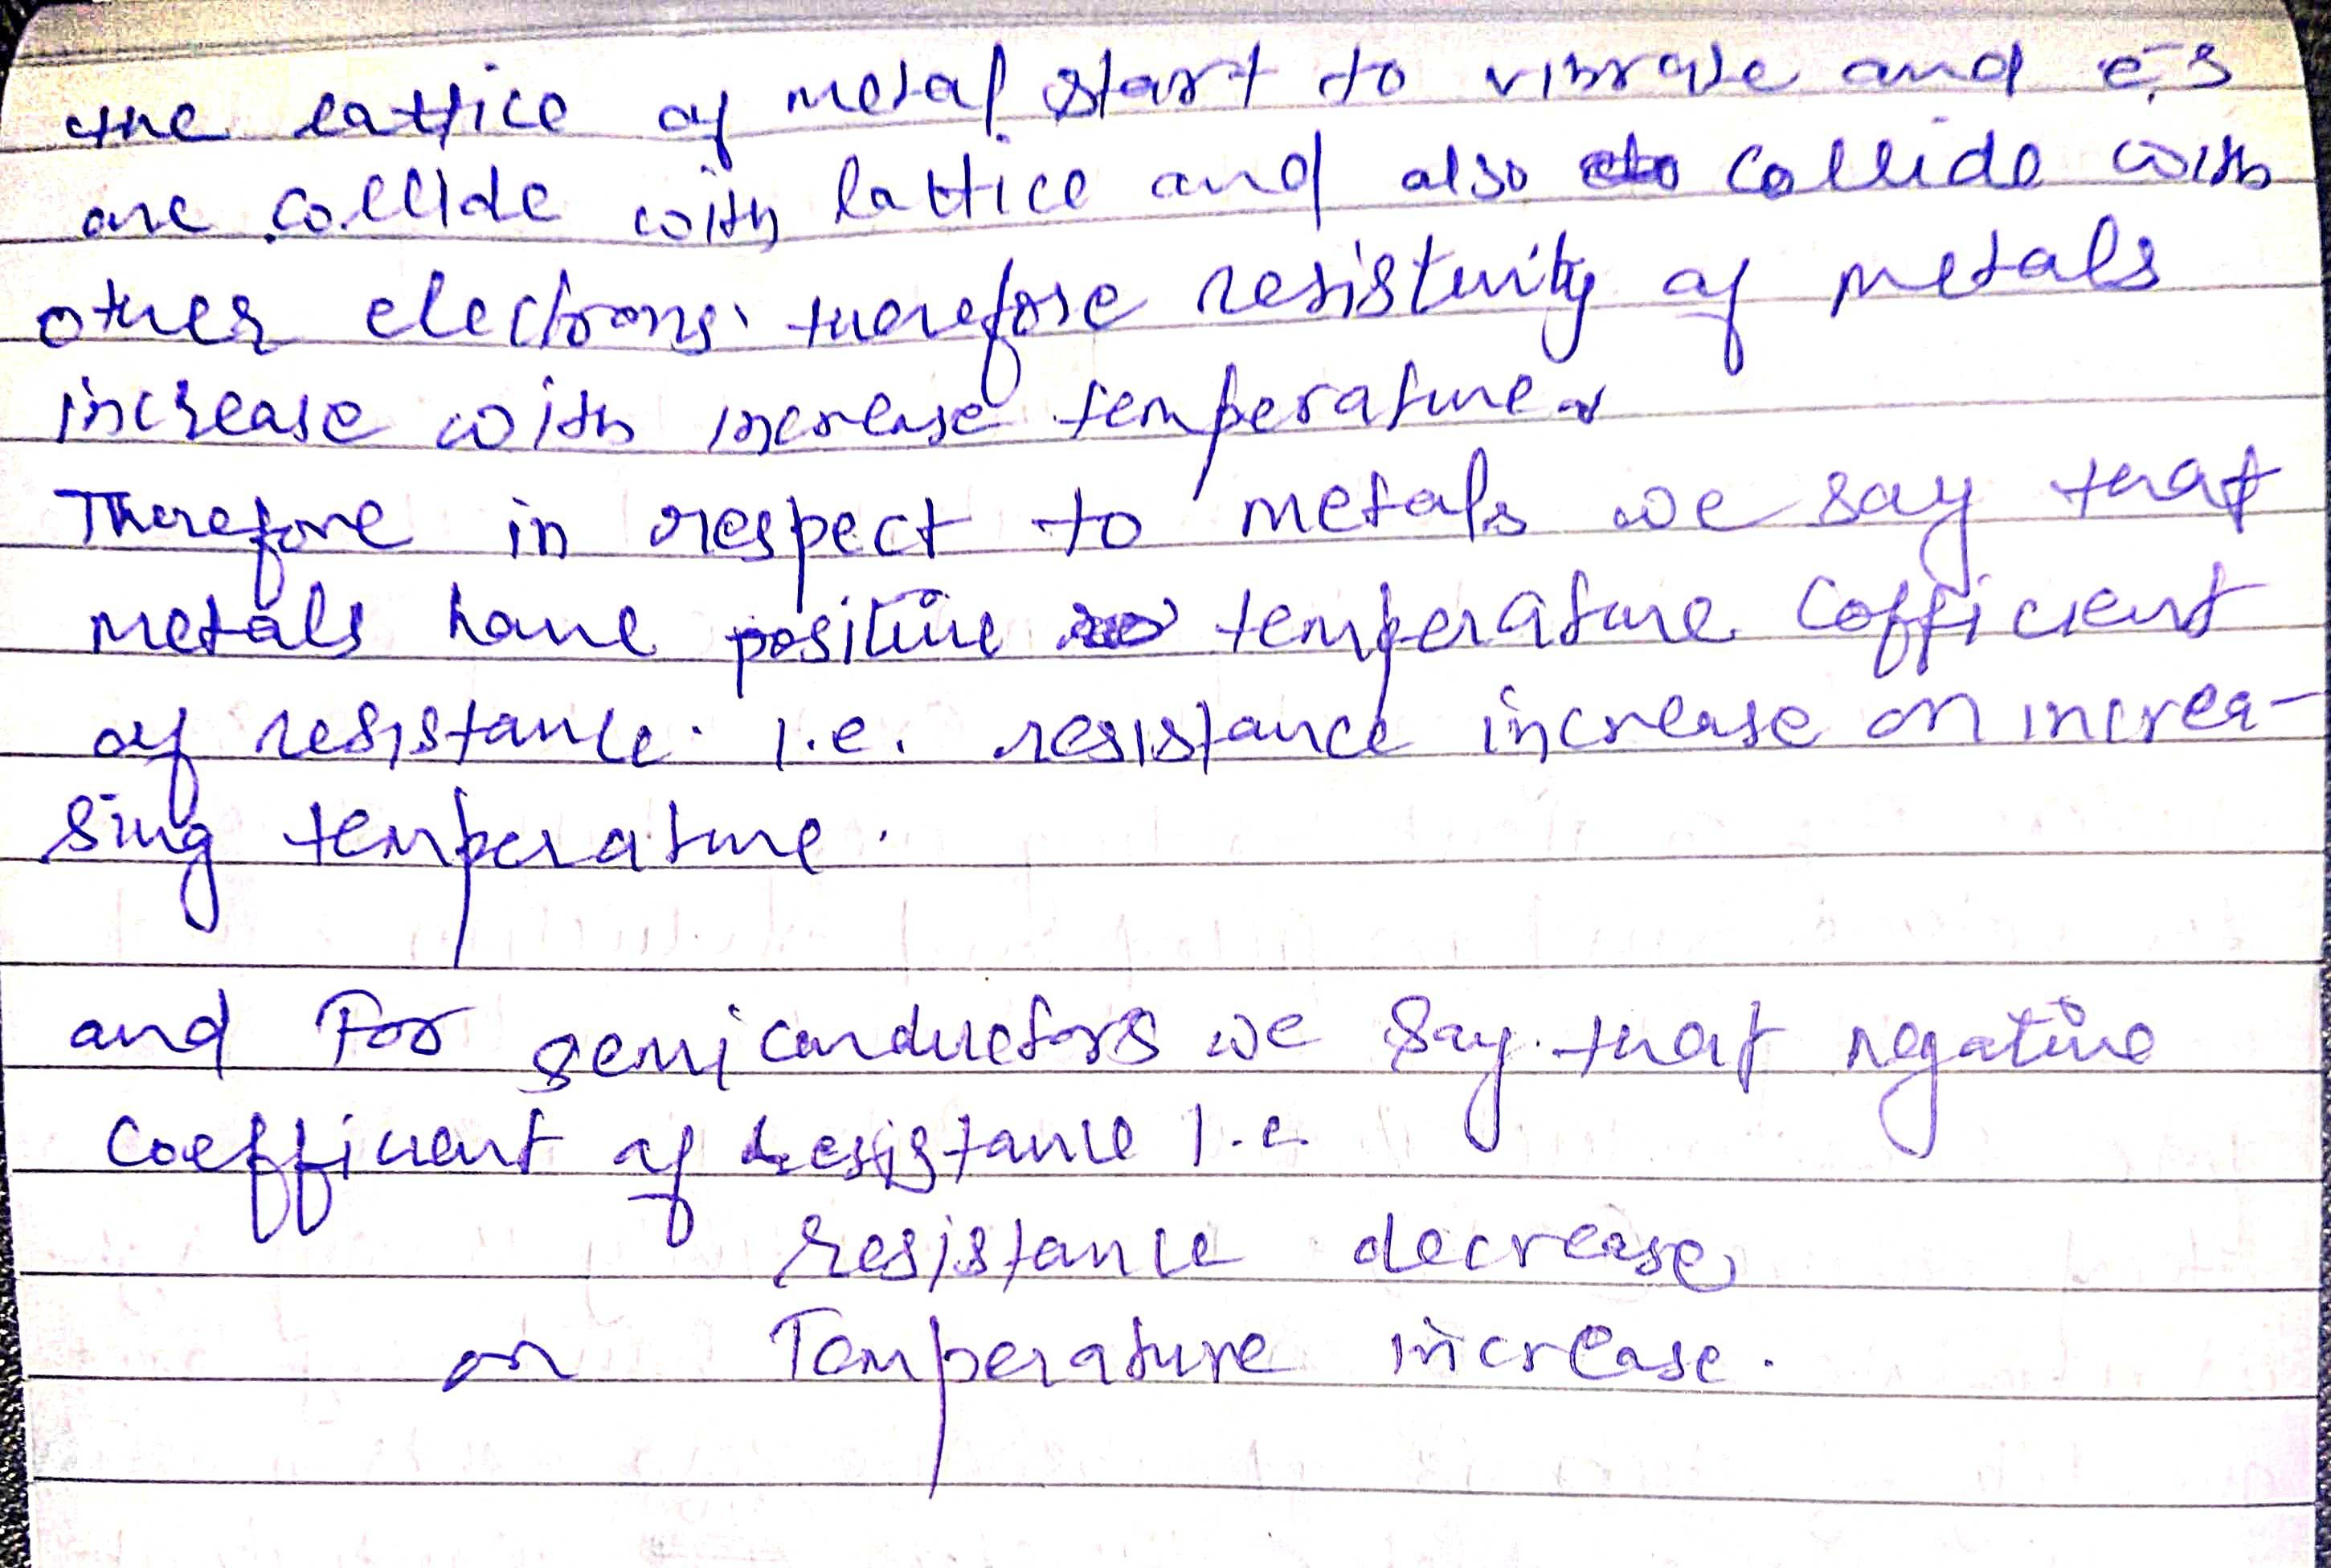 the lattice of metal start to vibrate and e⁻s
are collide with lattice and also collide with
other electrons. therefore resistivity of metals
increase with increase temperature.
Therefore in respect to metals we say that
metals have positive temperature Cofficient
of resistance. i.e. resistance increase on increa-
sing temperature.
and For semiconductors we say that negative
Coefficient of resistance i.e.
resistance decrease
on Temperature increase.